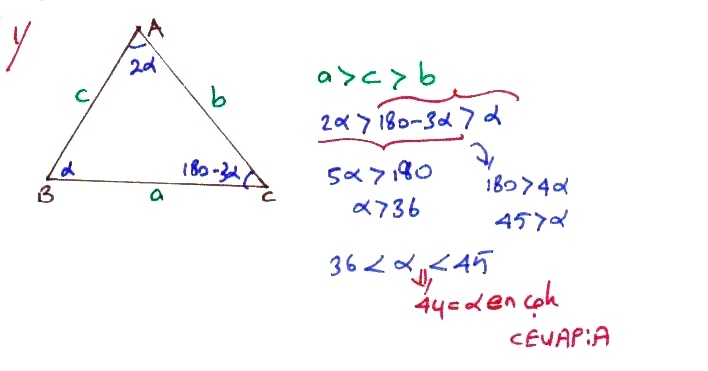 y
A
2α
c
b
B
α
180-3α
C
a
a>c>b
2α>180-3α>α
5α>180
α>36
180>4α
45>α
36<α<45
44=α en çok
CEVAP:A